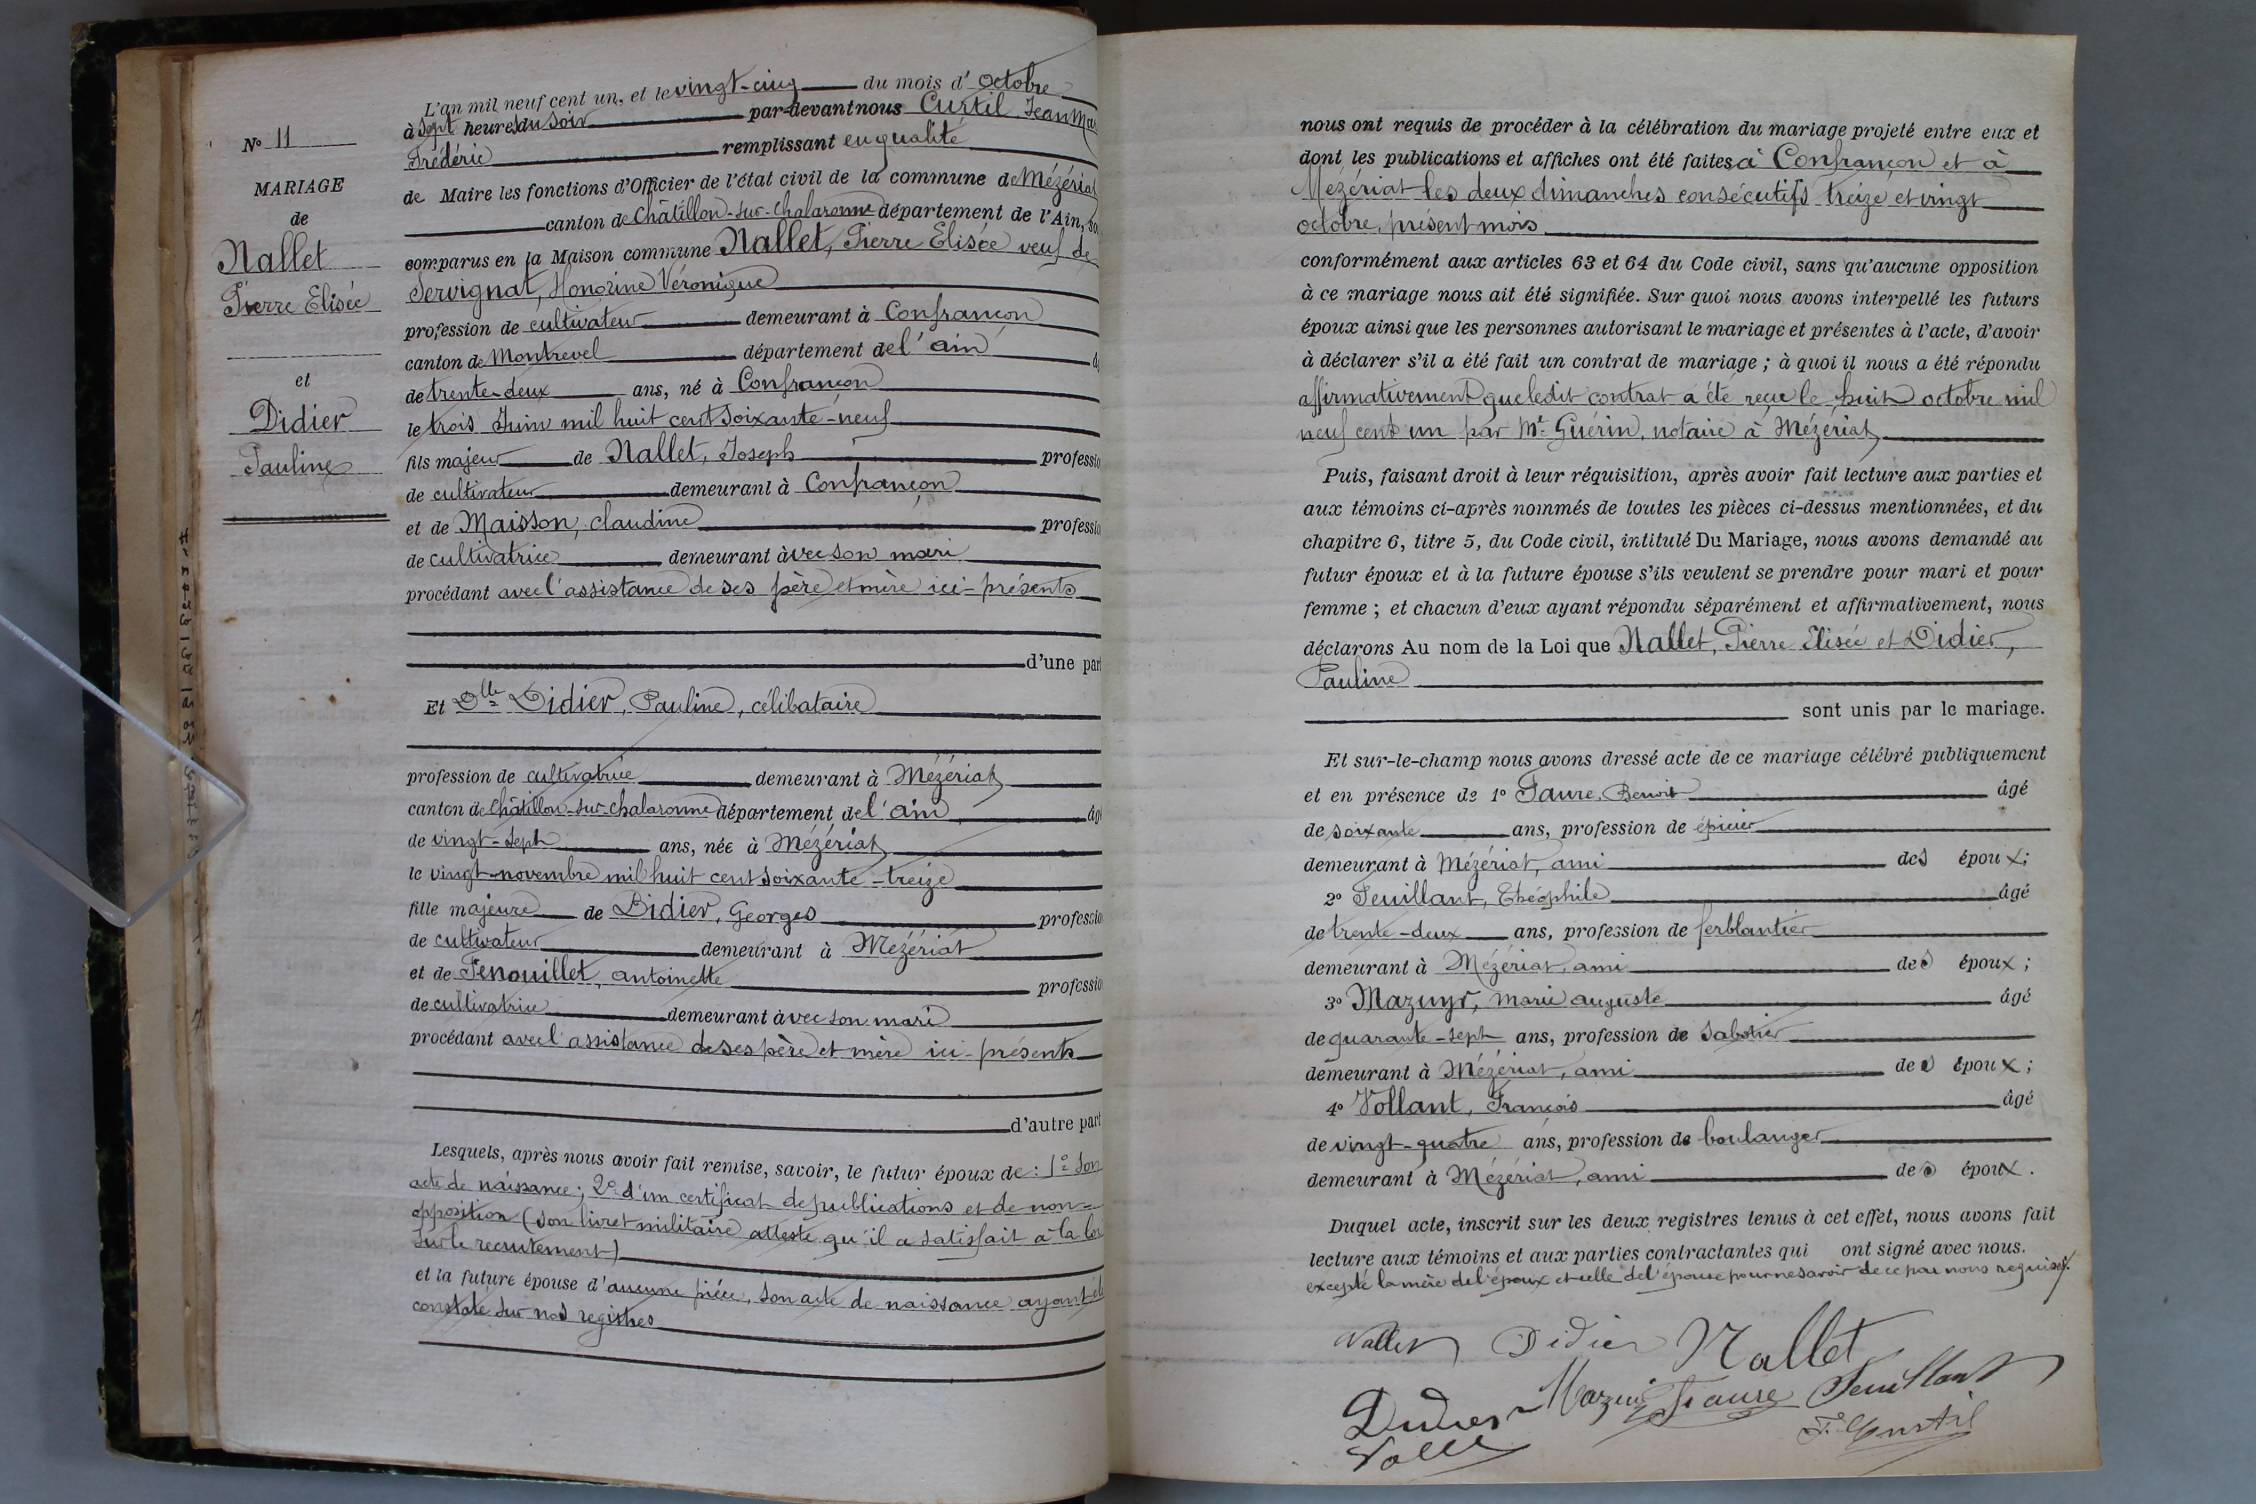 N° 11
MARIAGE
de
Nallet
Pierre Elisée
et
Didier
Pauline
L'an mil neuf cent un, et le vingt-cinq du mois d'octobre
à sept heures du soir par-devant nous Curtil Jean
Frédéric remplissant en qualité
de Maire les fonctions d'Officier de l'état civil de la commune de Mézériat
canton de Châtillon-sur-Chalaronne département de l'Ain,
comparus en la Maison commune Nallet, Pierre Elisée veuf de
Servignat, Honorine Véronique
profession de cultivateur demeurant à Confrançon
canton de Montrevel département de l'ain
de trente-deux ans, né à Confrançon
le trois Juin mil huit cent soixante-neuf
fils majeur de Nallet, Joseph professio
de cultivateur demeurant à Confrançon
et de Maisson, claudine professio
de cultivatrice demeurant àvec son mari
procédant avec l'assistance de ses père et mère ici-présents
d'une part
Et Dlle Didier, Pauline, célibataire
profession de cultivatrice demeurant à Mézériat
canton de Châtillon-sur-chalaronne département de l'ain âgé
de vingt-sept ans, née à Mézériat
le vingt novembre mil huit cent soixante-treize
fille majeure de Didier, Georges professio
de cultivateur demeurant à Mézériat
et de Fenouillet, antoinette professio
de cultivatrice demeurant àvec son mari
procédant avec l'assistance de ses père et mère ici-présents
d'autre part
Lesquels, après nous avoir fait remise, savoir, le futur époux de : 1° son
acte de naissance ; 2° d'un certificat de publications et de non-
opposition (son livret militaire atteste qu'il a satisfait à la loi
sur le recrutement)
et la future épouse d'aucune pièce, son acte de naissance ayant été
constaté sur nos registres
nous ont requis de procéder à la célébration du mariage projeté entre eux et
dont les publications et affiches ont été faites à Confrançon et à
Mézériat les deux dimanches consécutifs treize et vingt
octobre, présent mois
conformément aux articles 63 et 64 du Code civil, sans qu'aucune opposition
à ce mariage nous ait été signifiée. Sur quoi nous avons interpellé les futurs
époux ainsi que les personnes autorisant le mariage et présentes à l'acte, d'avoir
à déclarer s'il a été fait un contrat de mariage ; à quoi il nous a été répondu
affirmativement que ledit contrat a été reçu le huit octobre mil
neuf cent un par Mt Guérin, notaire à Mézériat
Puis, faisant droit à leur réquisition, après avoir fait lecture aux parties et
aux témoins ci-après nommés de toutes les pièces ci-dessus mentionnées, et du
chapitre 6, titre 5, du Code civil, intitulé Du Mariage, nous avons demandé au
futur époux et à la future épouse s'ils veulent se prendre pour mari et pour
femme ; et chacun d'eux ayant répondu séparément et affirmativement, nous
déclarons Au nom de la Loi que Nallet, Pierre Elisée et Didier,
Pauline
sont unis par le mariage.
Et sur-le-champ nous avons dressé acte de ce mariage célébré publiquement
et en présence de 1° Faure, Benoit âgé
de soixante ans, profession de épicier
demeurant à Mézériat, ami des époux ;
2° Feuillant, Théophile âgé
de trente-deux ans, profession de ferblantier
demeurant à Mézériat, ami des époux ;
3° Mazuyr, marie auguste âgé
de quarante-sept ans, profession de sabotier
demeurant à Mézériat, ami des époux ;
4° Vollant, François âgé
de vingt-quatre ans, profession de boulanger
demeurant à Mézériat, ami des époux.
Duquel acte, inscrit sur les deux registres tenus à cet effet, nous avons fait
lecture aux témoins et aux parties contractantes qui ont signé avec nous.
excepté la mère de l'époux et celle de l'épouse pour ne savoir de ce par nous requises.
Nallet Didier Nallet
Didier Faure Feuillant
F. Curtil